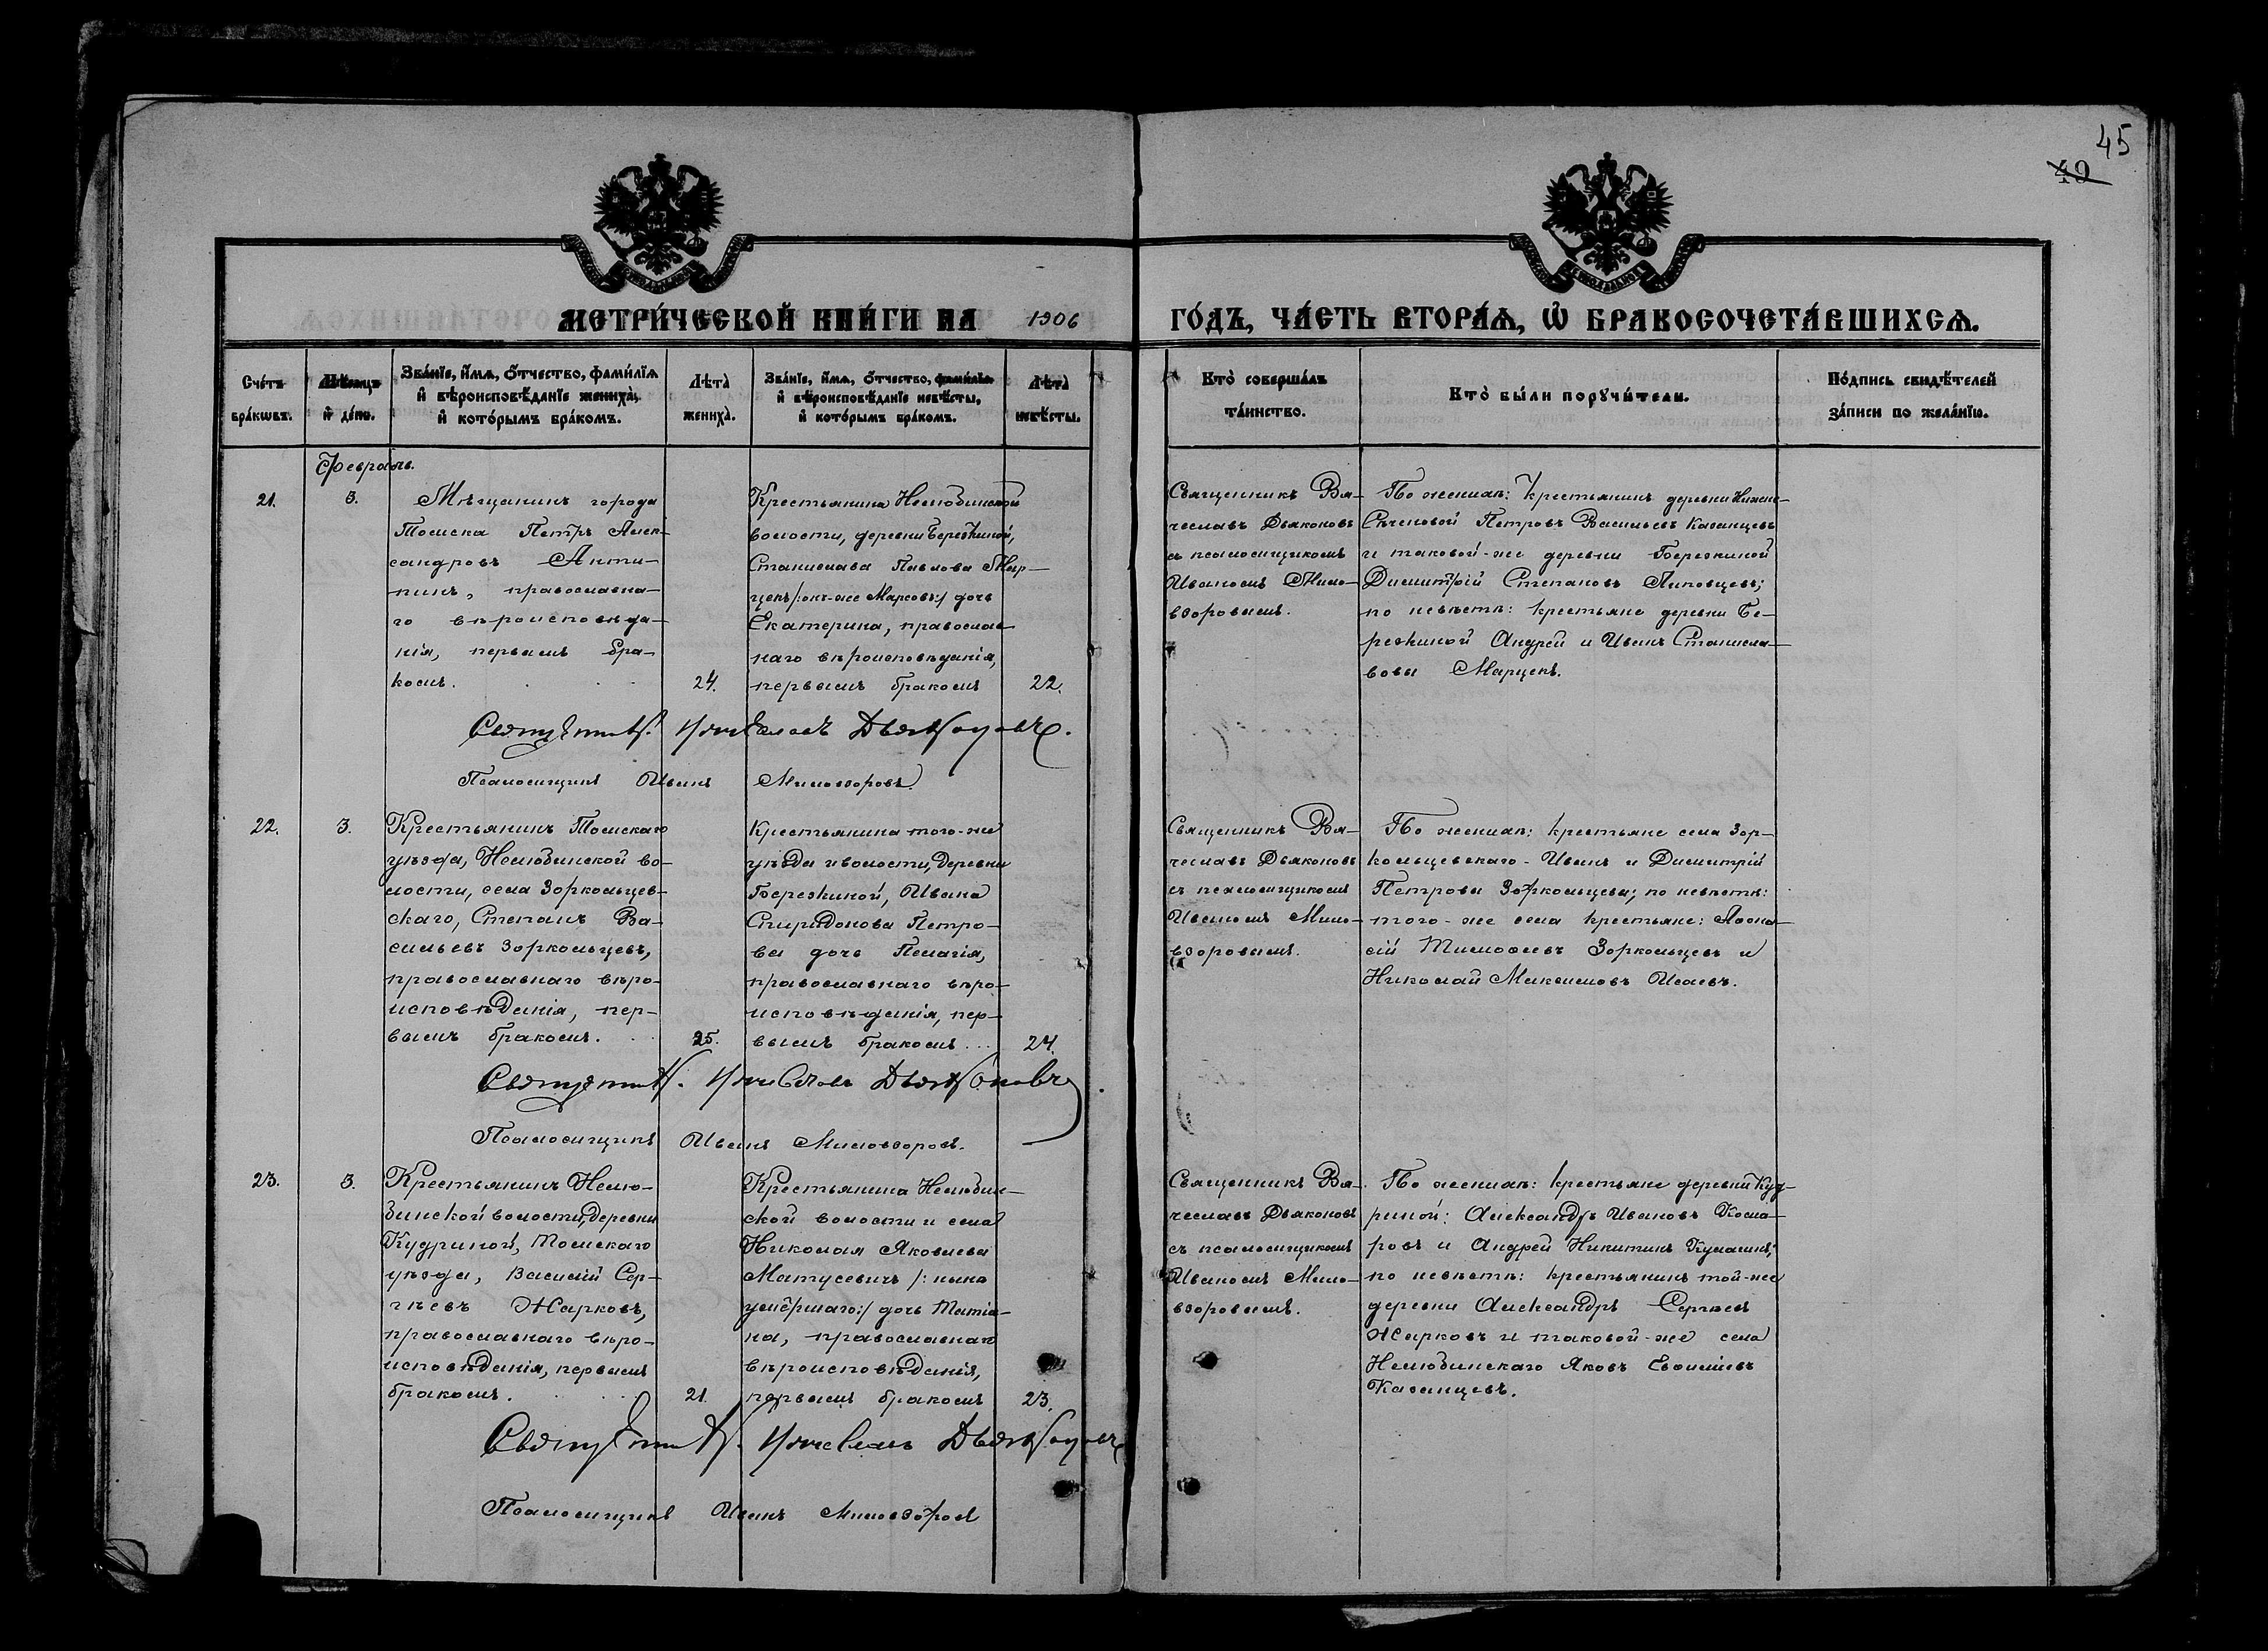 45
40
МЕТРИ́ЧЕСКОЙ КНИ́ГИ НА 1906 ГО́ДЪ, ЧА́СТЬ ВТОРА́Ѧ, Ѽ БРАКОСОЧЕТА́ВШИХСѦ.
Сче́тъ
бра́кѡвъ.
Мѣ́сѧцъ
и҆ де́нь.
Зва́нїе, и҆́мѧ, ѻ҆́тчество, фами́лїѧ
и҆ вѣроисповѣ́данїе жениха̀,
и҆ кото́рымъ бра́комъ.
Лѣта̀
жениха̀.
Зва́нїе, и҆́мѧ, ѻ҆́тчество, фами́лїѧ
и҆ вѣроисповѣ́данїе невѣ́сты,
и҆ кото́рымъ бра́комъ.
Лѣта̀
невѣ́сты.
Кто̀ соверша́лъ
та́инство.
Кто̀ бы́ли порꙋчи́тели.
По́дпись свидѣ́телей
за́писи по жела́нїю.
Февраль.
21.
3.
Мѣщанинъ города
Томска Петръ Алек-
сандровъ Анти-
пинъ, православна-
го вѣроисповѣда-
нія, первымъ бра-
комъ.
24.
Крестьянина Нелюбинской
волости, деревни Березкиной,
Станислава Павлова Мар-
ценъ /:онъ-же Марсовъ:/ дочь
Екатерина, православ-
наго вѣроисповѣданія,
первымъ бракомъ
22.
Священникъ Вя-
чеславъ Дьяконовъ
съ псаломщикомъ
Иваномъ Мило-
взоровымъ.
По женихѣ: крестьянинъ деревни Нижне-
Сѣченовой Петровъ Васильевъ Казанцевъ
и таковой-же деревни Березкиной
Димитрій Степановъ Липовцевъ;
по невѣстѣ: крестьяне деревни Бе-
резкиной Андрей и Иванъ Станисла-
вовы Марценъ.
Священникъ Вячеславъ Дьяконовъ.
Псаломщикъ Иванъ Миловзоровъ.
22.
3.
Крестьянинъ Томскаго
уѣзда, Нелюбинской во-
лости, села Зоркольцев-
скаго, Степанъ Ва-
сильевъ Зоркольцевъ,
православнаго вѣро-
исповѣданія, пер-
вымъ бракомъ.
25.
Крестьянина того-же
уѣзда и волости, деревни
Березкиной, Ивана
Спиридонова Петро-
ва дочь Пелагія,
православнаго вѣро-
исповѣданія, пер-
вымъ бракомъ...
24.
Священникъ Вя-
чеславъ Дьяконовъ
съ псаломщикомъ
Иваномъ Мило-
взоровымъ.
По женихѣ: крестьяне села Зор-
кольцевскаго - Иванъ и Димитрій
Петровы Зоркольцевы; по невѣстѣ:
того-же села крестьяне: Аѳана-
сій Тимоѳеевъ Зоркольцевъ и
Николай Максимовъ Исаевъ.
Священникъ Вячеславъ Дьяконовъ
Псаломщикъ Иванъ Миловзоровъ.
23.
3.
Крестьянинъ Нелю-
бинской волости, деревни
Кудриной, Томскаго
уѣзда, Василій Сер-
гѣевъ Жарковъ,
православнаго вѣро-
исповѣданія, первымъ
бракомъ.
21.
Крестьянина Нелюбин-
ской волости и села
Николая Яковлева
Матусевичъ /:нынѣ
умершаго:/ дочь Татіа-
на, православнаго
вѣроисповѣданія,
первымъ бракомъ
23.
Священникъ Вя-
чеславъ Дьяконовъ
съ псаломщикомъ
Иваномъ Мило-
взоровымъ.
По женихѣ: крестьяне деревни Куд-
риной: Александръ Ивановъ Кома-
ровъ и Андрей Никитинъ Кулакинъ;
по невѣстѣ: крестьянинъ той-же
деревни Александръ Сергѣевъ
Жарковъ и таковой-же села
Нелюбинскаго Яковъ Евѳиміевъ
Казанцевъ.
Священникъ Вячеславъ Дьяконовъ
Псаломщикъ Иванъ Миловзоровъ